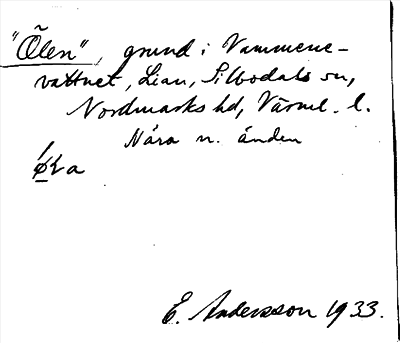 "Ölen", grund i Vammene-
vattnet, Lian, Silbodals sn,
Nordmarks hd, Värml. l.
Nära n. änden
E. Andersson 1933.